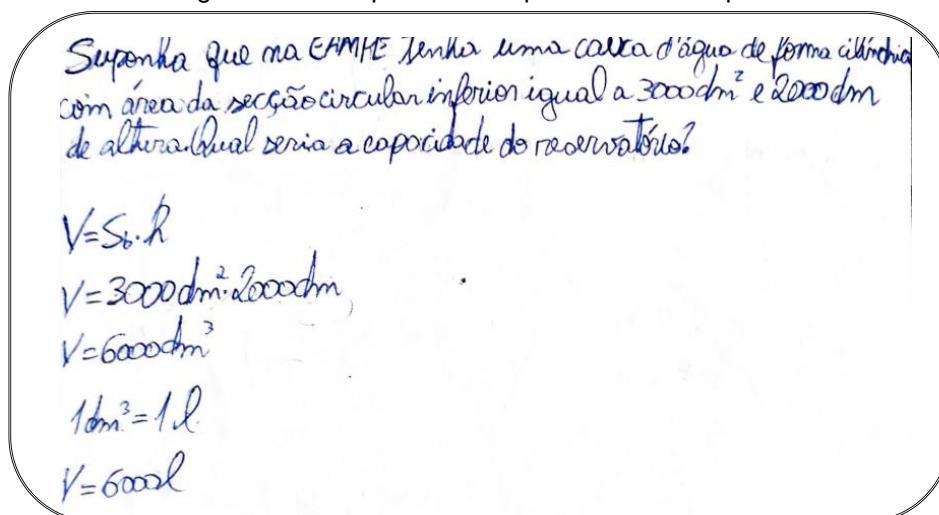 Suponha que na EAMPE tenha uma caixa d'água de forma cilíndrica
com área da secção circular inferior igual a 3000dm² e 2000dm
de altura. Qual seria a capacidade do reservatório?
V=Sb.h
V=3000dm².2000dm
V=6000dm³
1dm³=1l
V=6000l